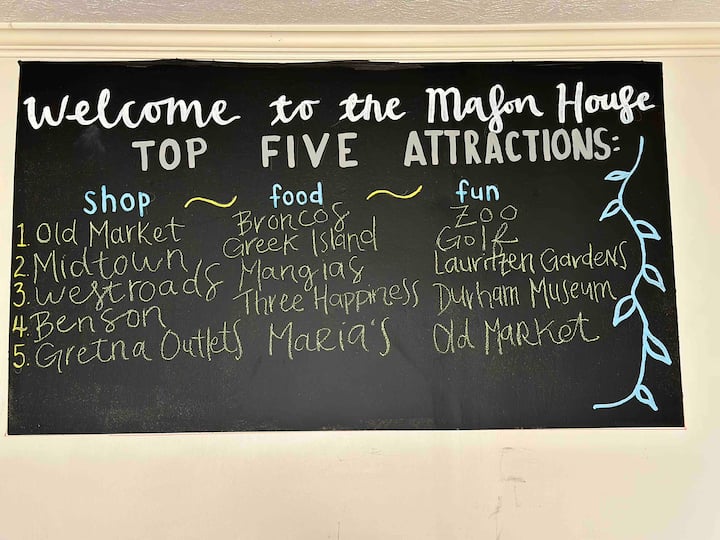 Welcome to the Mason House
TOP FIVE ATTRACTIONS:
shop ~ food ~ fun
1. Old Market Broncos Zoo
2. Midtown Greek Island Golf
3. Westroads Mangias Lauritzen Gardens
4. Benson Three Happiness Durham Museum
5. Gretna Outlets Maria's Old Market